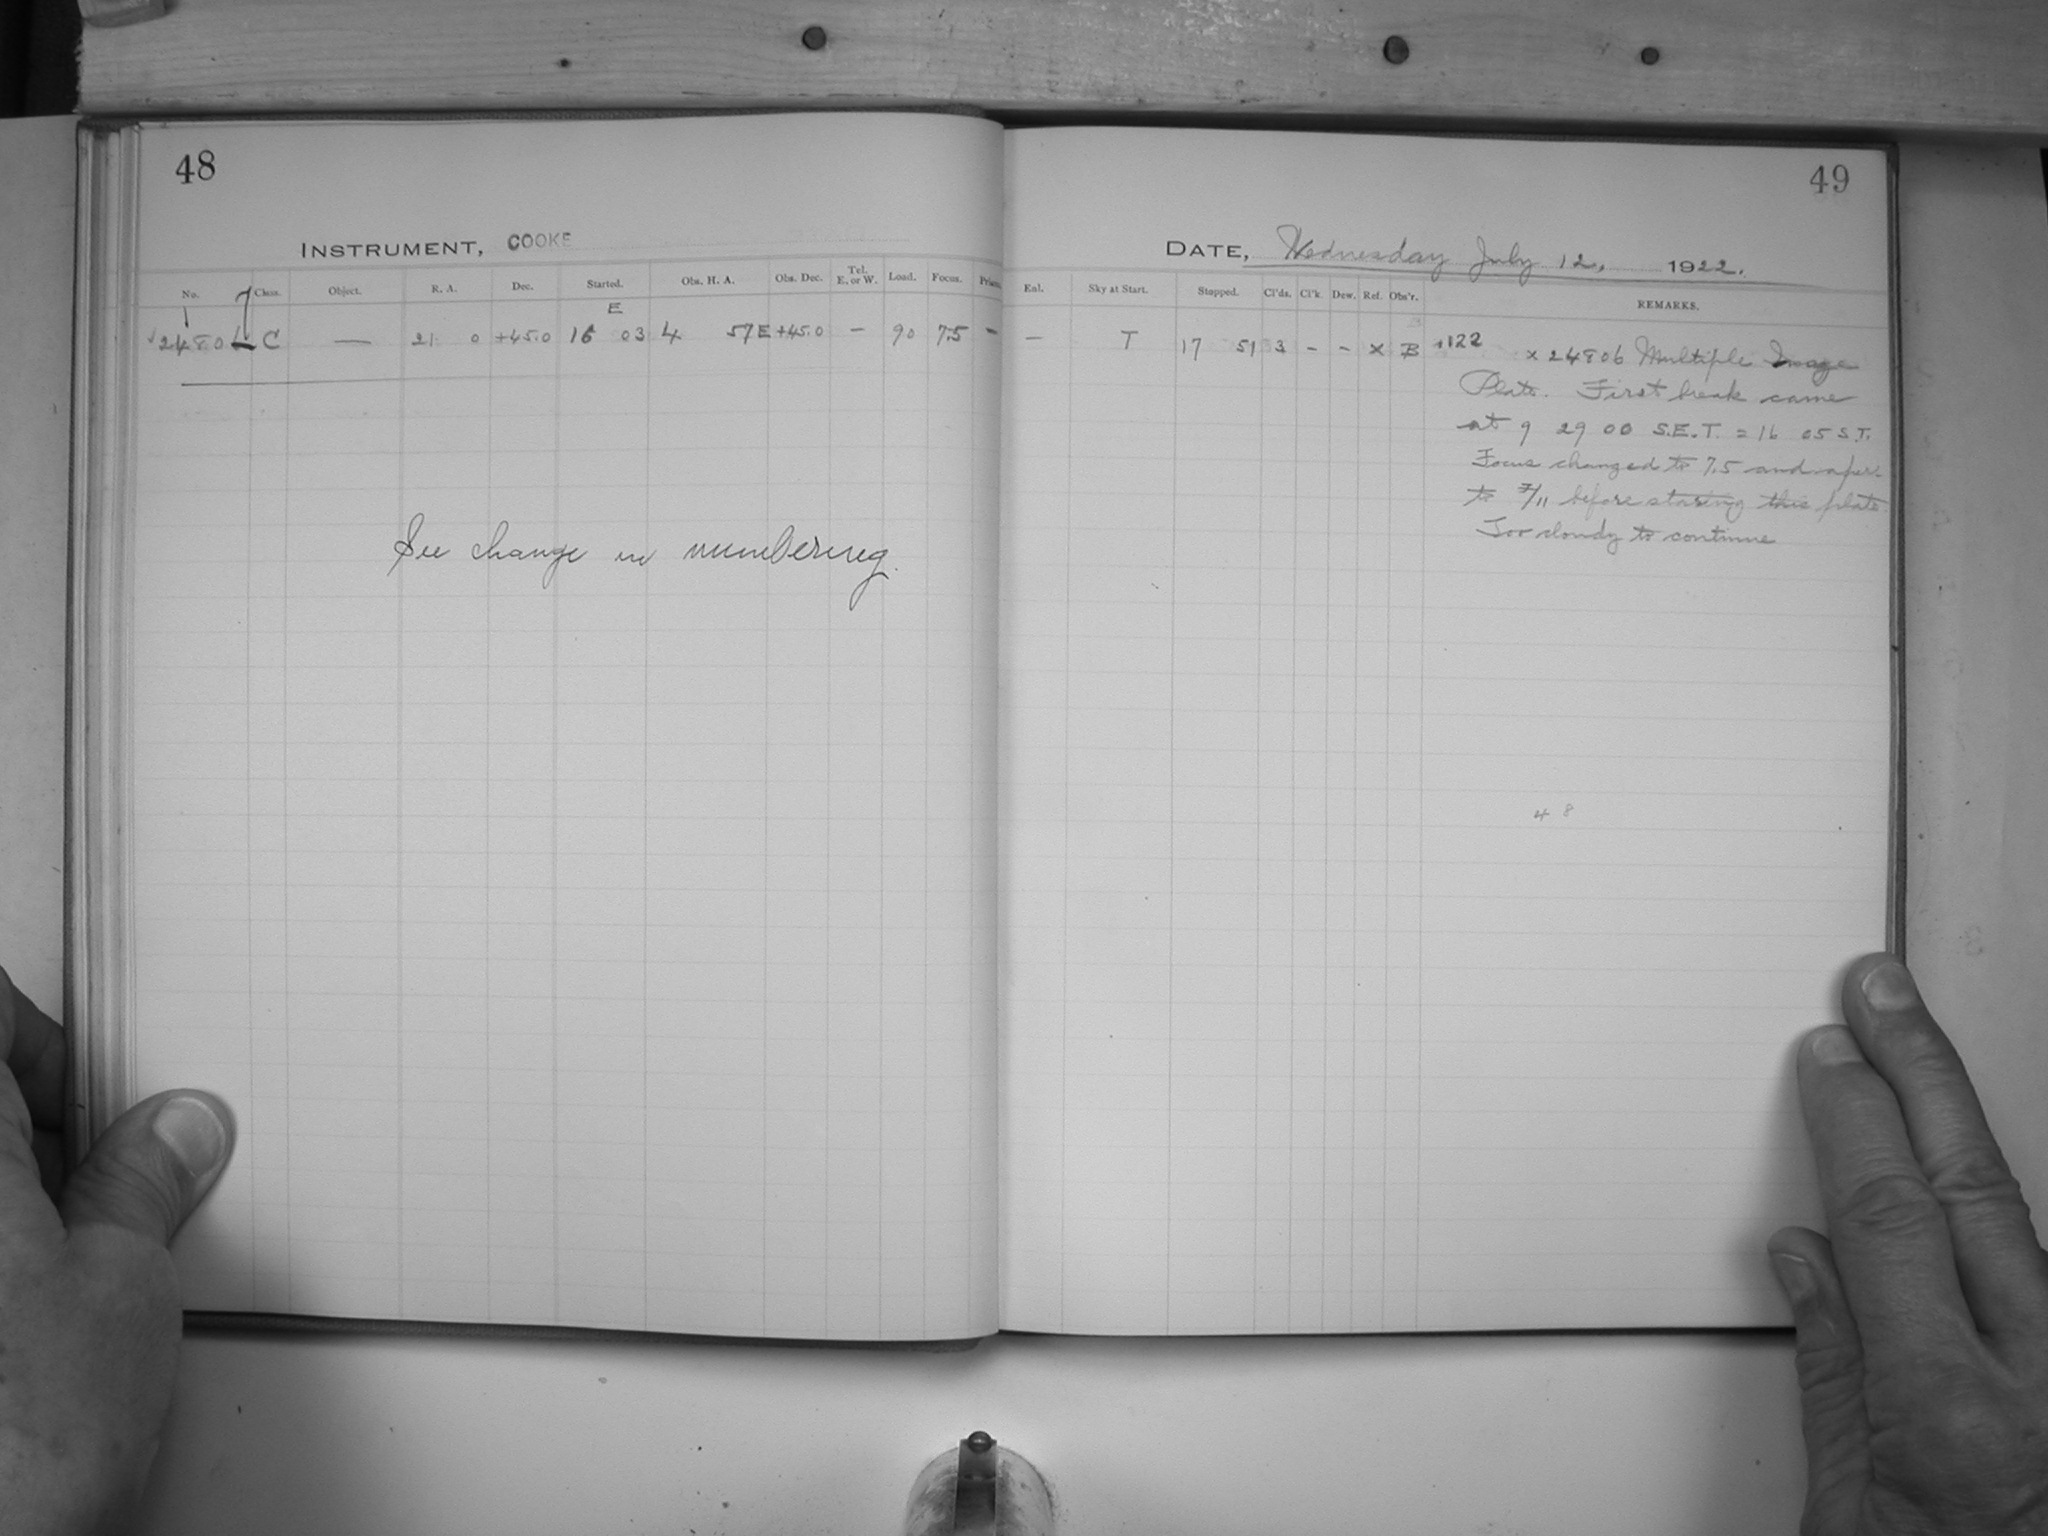 48
INSTRUMENT, COOKE
No. Class. Object. R. A. Dec. Started. Obs. H. A. Obs. Dec. Tel. E. or W. Load. Focus. Prism.
7 E
C — 21 0 +45.0 16 03 4 57 E +45.0 — 90 7.5 —
See change in numbering.
49
DATE, Wednesday July 12, 1922.
Enl. Sky at Start. Stopped. Cl'ds. Cl'k. Dew. Ref. Obs'r. REMARKS.
— T 17 51 3 - - x B 1122 x 24806 Multiple Image
Plate. First break came
at 9 29 00 S.E.T. = 16 05 S.T.
Focus changed to 7.5 and aper.
to F/11 before starting this plate
Too cloudy to continue
4 8